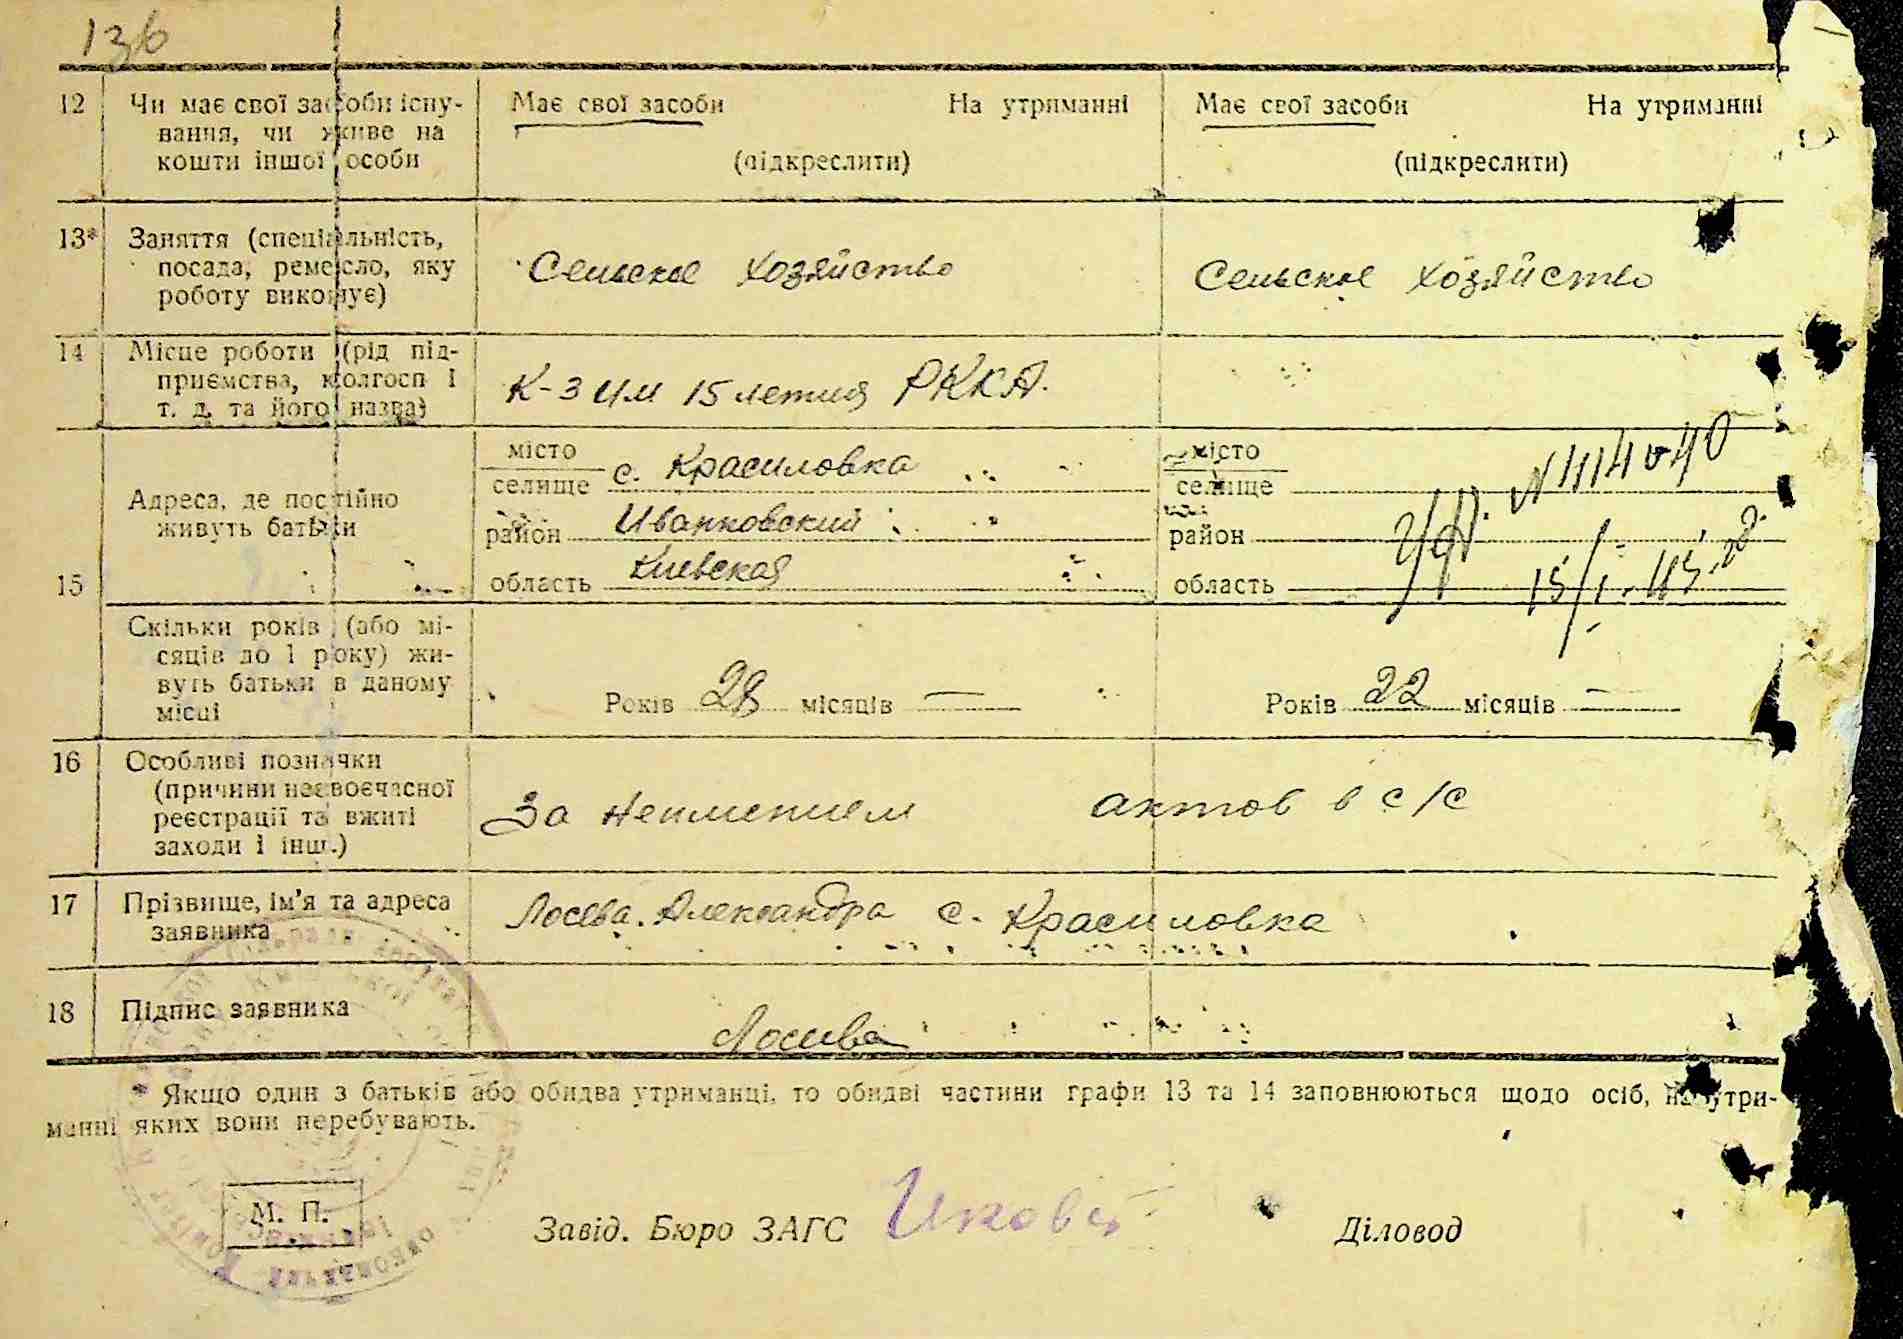 136
12 Чи має свої засоби існу-
вання, чи живе на
кошти іншої особи
Має свої засоби На утриманні
(підкреслити)
Має свої засоби На утриманні
(підкреслити)
13* Заняття (спеціальність,
посада, ремесло, яку
роботу виконує)
Сельское хозяйство
Сельское хозяйство
14 Місце роботи (рід під-
приємства, колгосп і
т. д. та його назва)
К-з им 15 летия РККА.
15 Адреса, де постійно
живуть батьки
місто
селище с. Красиловка
район Иванковский
область Киевская
місто
селище
район
область
N 1114040
15/I-
Скільки років (або мі-
сяців до 1 року) жи-
вуть батьки в даному
місці
Років 28 місяців —
Років 22 місяців —
16 Особливі позначки
(причини несвоєчасної
реєстрації та вжиті
заходи і інш.)
За неимением актов в с/с
17 Прізвище, ім'я та адреса
заявника
Лосева. Александра с. Красиловка
18 Підпис заявника
Лосева
* Якщо один з батьків або обидва утриманці, то обидві частини графи 13 та 14 заповнюються щодо осіб, на утри-
манні яких вони перебувають.
М. П.
Завід. Бюро ЗАГС
Діловод